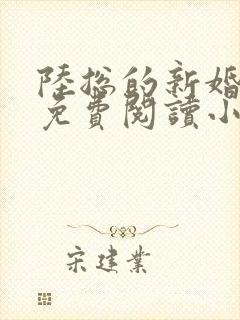 陸總的新婚
免費閱讀小
宋建業